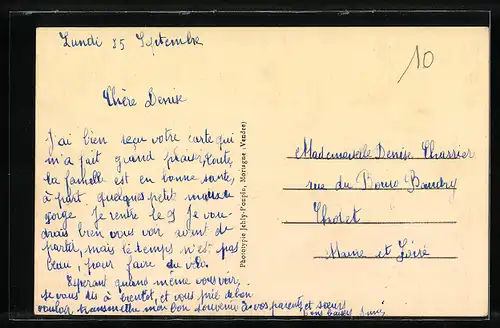 Lundi 25 Septembre
10
Chère Denise
J'ai bien reçu votre carte qui
m'a fait grand plaisir, toute
la famille est en bonne santé,
à part quelques petits maux de
gorge. Je rentre le 9 Je vou-
drais bien vous voir avant de
partir, mais le temps n'est pas
beau, pour faire du vélo.
Espérant quand même vous voir,
je vous dis à bientôt, et vous prie de bien
vouloir transmettre mon bon souvenir à vos parents et sœurs
Phototypie Jehly-Poupin, Mortagne (Vendée)
Mademoiselle Denise
rue du Baudry
Cholet
Maine et Loire